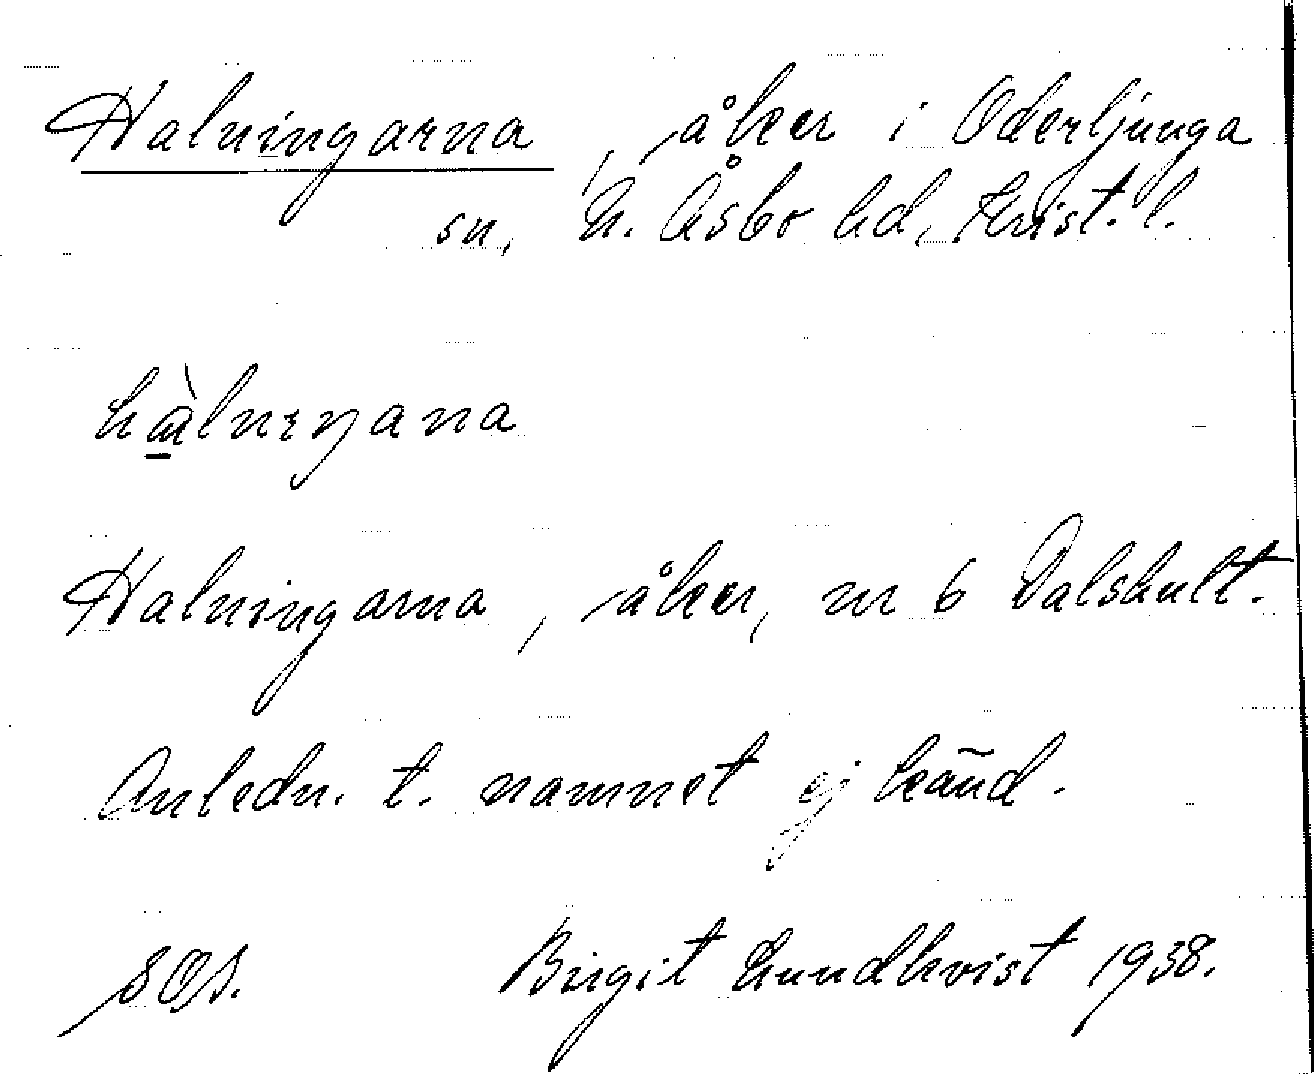 Halningarna, åker i Oderljunga
sn, N. Åsbo hd, Krist. l.
hàlnıŋana
Halningarna, åker, nr 6 Dalshult.
Anledn. t. namnet ej känd.
SOS. Birgit Lundkvist 1938.